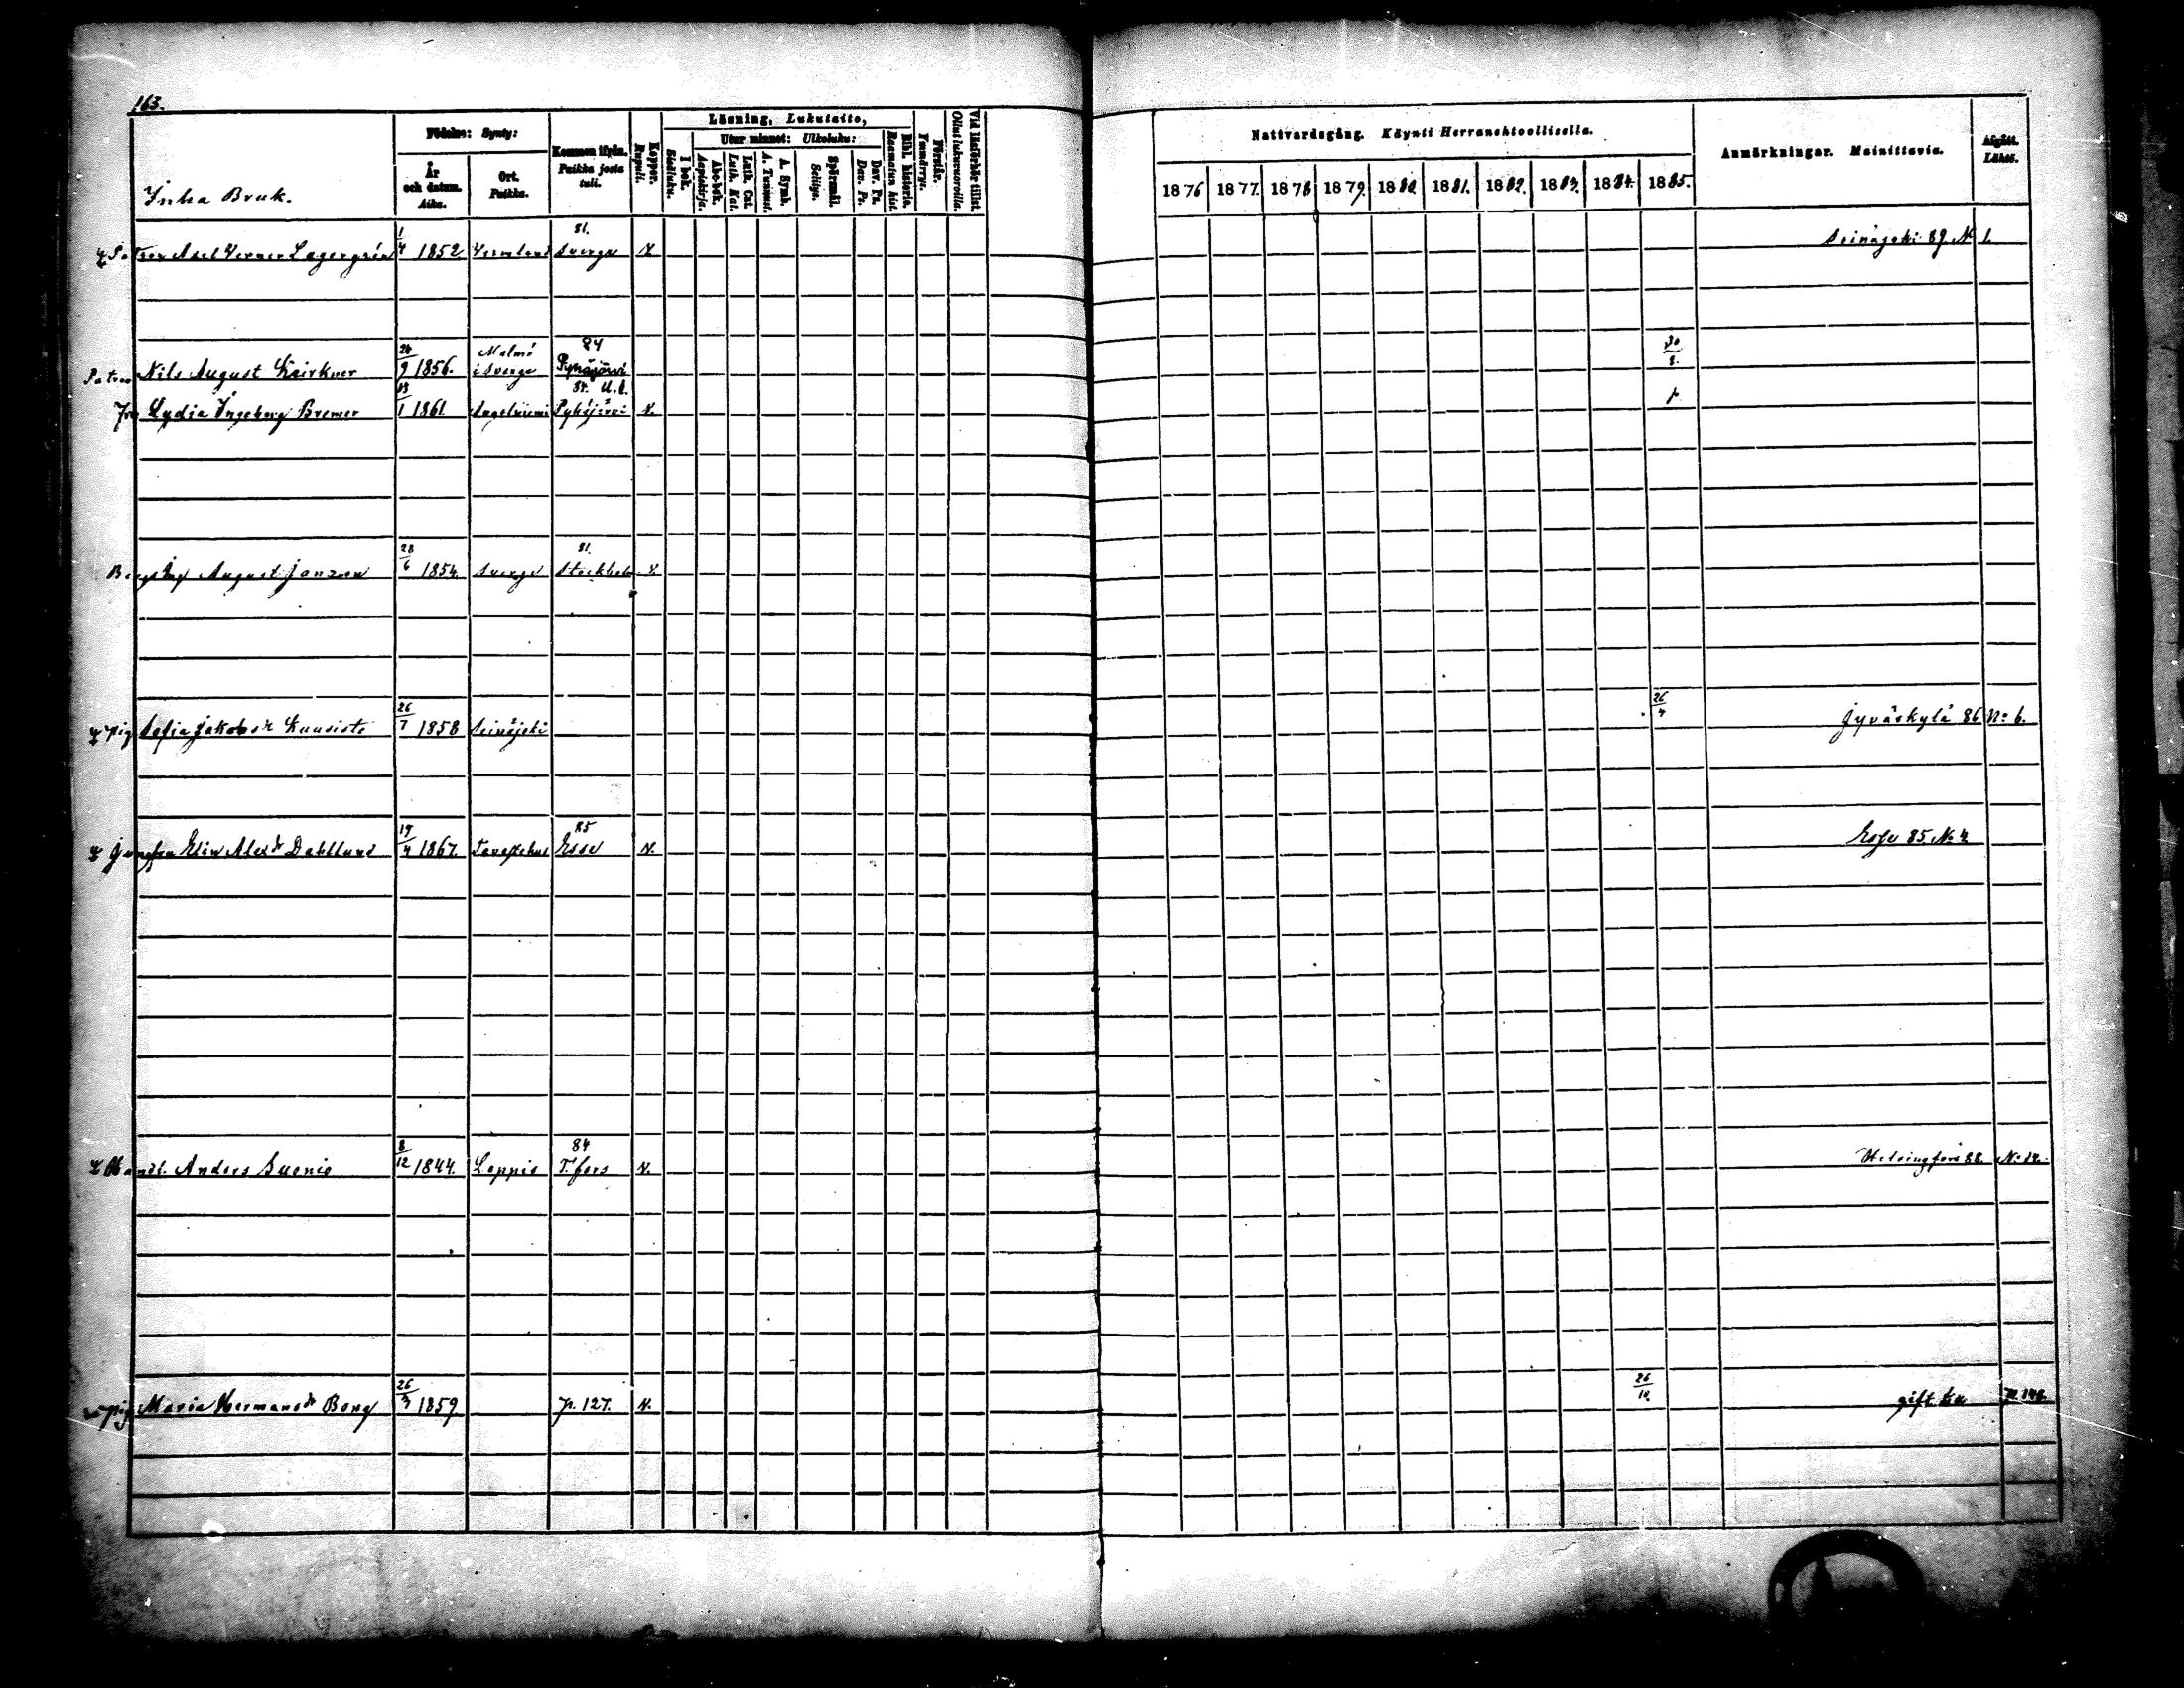 163.
Inha Bruk.
Födelse: Synty:
År och datum. Aika.
Ort. Paikka.
Kommen ifrån. Paikka josta tuli.
Koppor. Rupuli.
Läsning, Lukutaito,
I bok. Sisäluku.
Utur minnet: Ulkoluku:
Abc-bok. Aapiskirja.
Luth. Cat. Luth. Kat.
A. Symb. A. Tunnust.
Spörsmål. Selitys.
Dav. Ps. Dav. Ps.
Bibl. historia. Raamatun hist.
Förstår. Ymmärrys.
Vid läsförhör tillst. Ollut lukuvuoroilla.
Nattvardsgång. Käynti Herranehtoollisella.
1876 1877. 1878 1879. 1880. 1881. 1882. 1883. 1884. 1885.
Anmärkningar. Mainittavia.
Afgått. Lähtö.
Patron Axel Verner Lagergrén 1/4 1852 Vermland 81. Sverge N. Seinäjoki 89. No 1.
Patron Nils August Kairkner 24/9 1856. Malmö i Sverge 84 Pyhäjärvi 30/8.
Fru Lydia Ingeborg Bremer 13/1 1861 Angelniemi 84. U.l. Pyhäjärvi N.
August Janzon 28/6 1854. Sverge 81. Stockholm
Pig. Sofia Jakobsdr Kuusisto 26/7 1858 Seinäjoki 26/4 Jyväskylä 86 No 6.
Jungfru Elin Alexdr Dahllund 19/4 1867. Tavastehus 85 Esse N. Esse 85. No 4.
Handl. Anders Suonio 8/12 1844. Loppis 84 T.fors N. Helsingfors 88. No 14.
Pig. Maria Hermansdr Bong 26/3 1859 p. 127. N. 26/10. gift